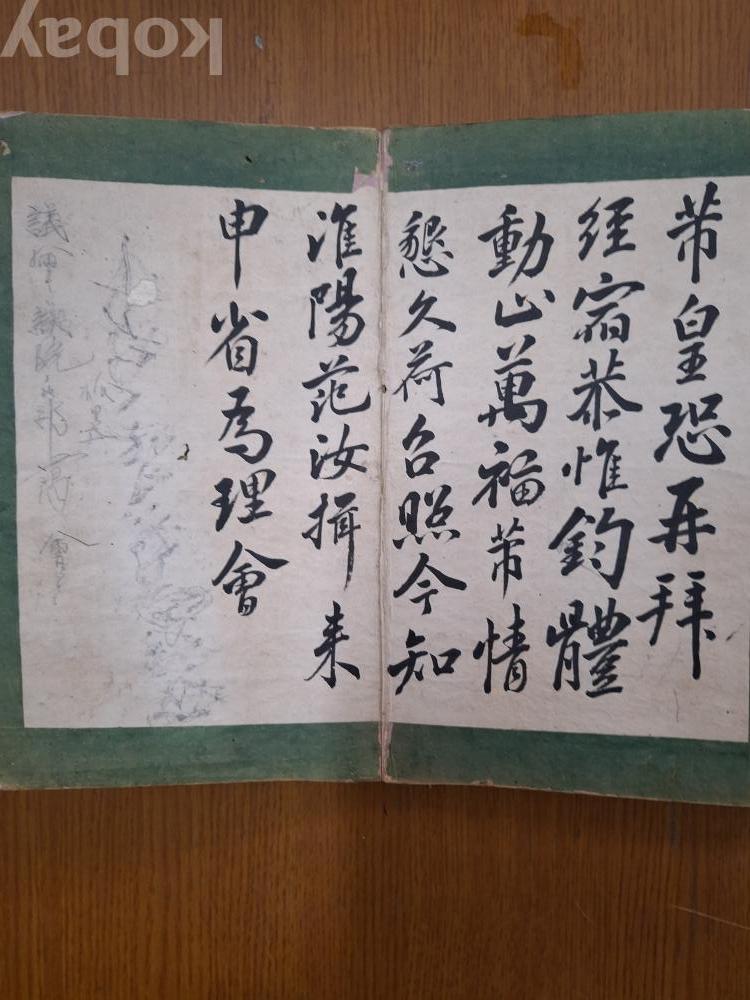 kobay
芾皇恐再拜
經宿恭惟鈞體
動止萬福芾情
懇久荷台照今知
淮陽范汝揖來
申省為理會